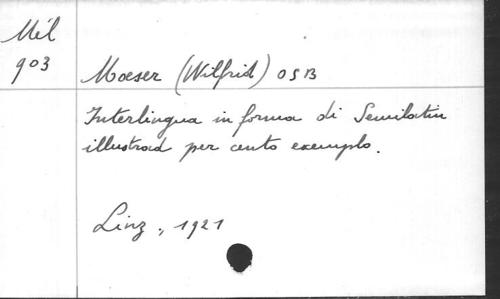 Mél
903
Moeser (Wilfrid) OSB
Interlingua in forma di Semilatin
illustrad per cento exemplo.
Linz, 1921